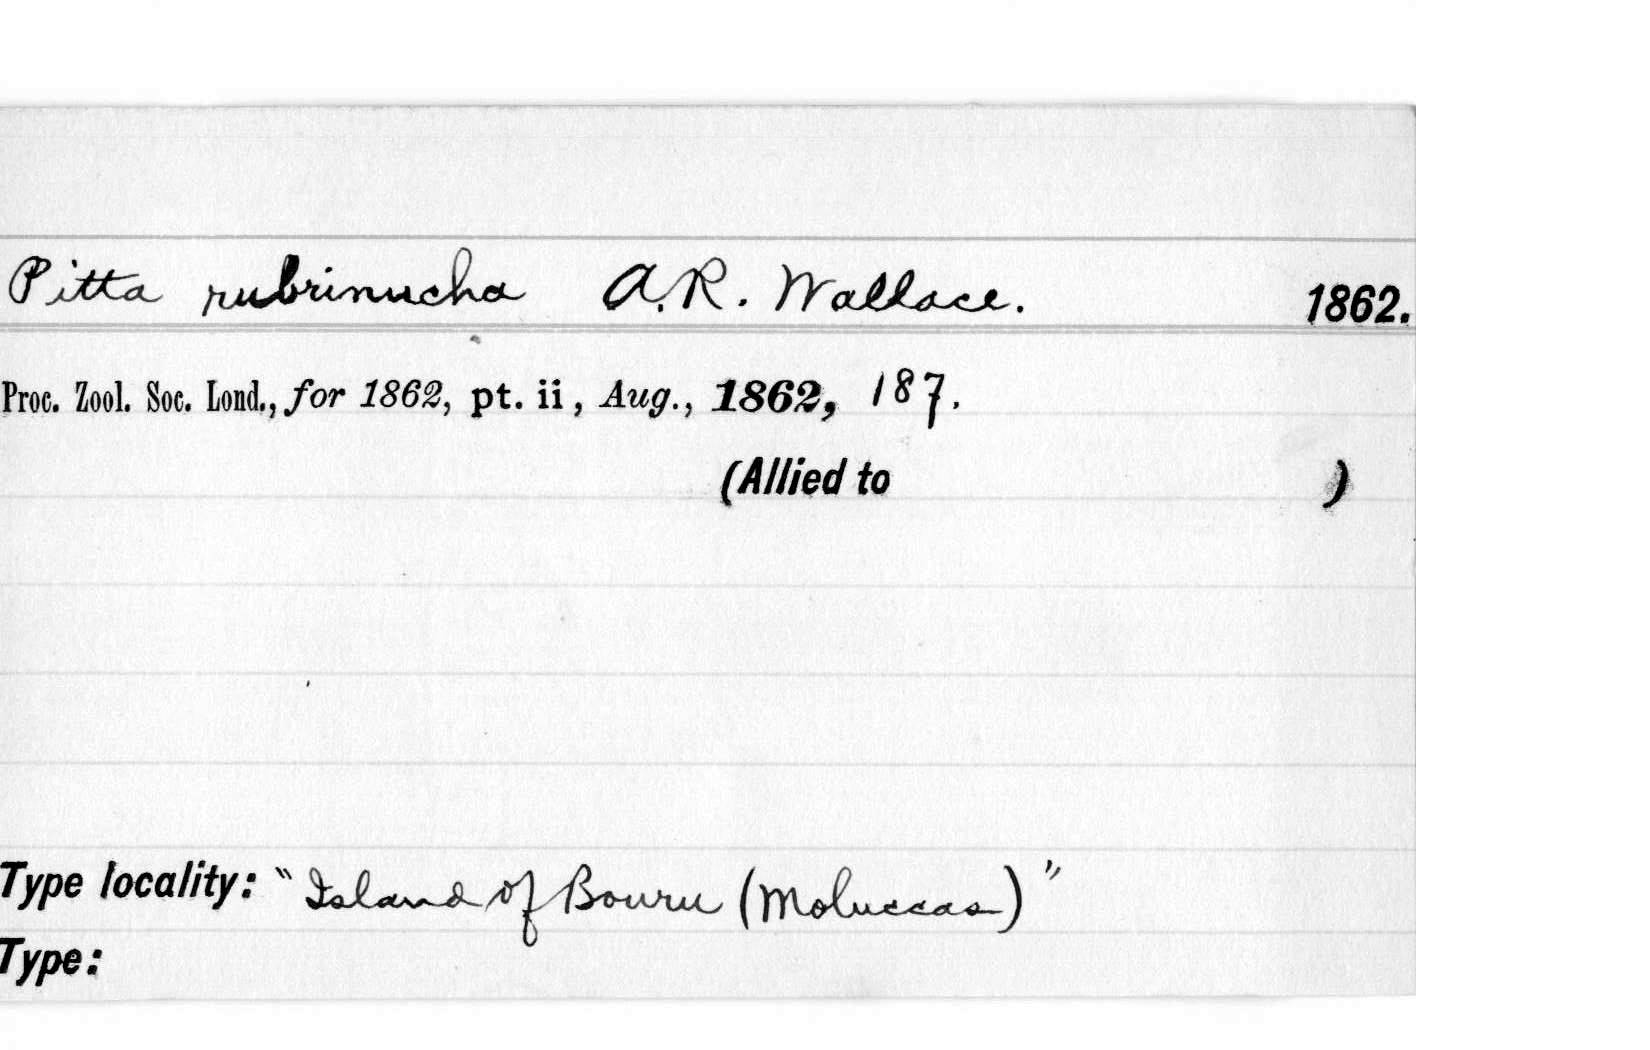 Pitta rubrinucha A.R. Wallace. 1862.
Proc. Zool. Soc. Lond., for 1862, pt. ii, Aug., 1862, 187.
(Allied to )
Type locality: "Island of Bouru (Moluccas)"
Type: